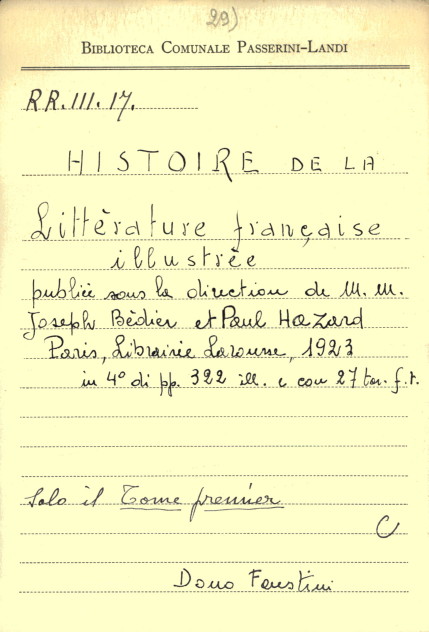 29)
BIBLIOTECA COMUNALE PASSERINI-LANDI
RR.III.17.
HISTOIRE DE LA
Littèrature française
illustrèe
publièe sous la direction de M. M.
Joseph Bèdier et Paul Hazard
Paris, Librairie Larousse, 1923
in 4° di pp. 322 ill. e con 27 tav. f.t.
Solo il Tome premier
C
Dono Faustini